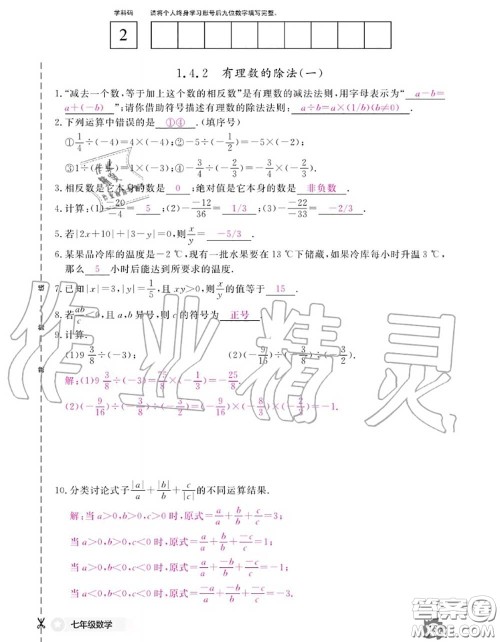 学科码 请将个人终身学习形号后九位数字填写完整.
2
1.4.2 有理数的除法(一)
1.“减去一个数,等于加上这个数的相反数”是有理数的减法法则,用字母表示为“ a-b=
a+(-b) ”;请你借助符号描述有理数的除法法则: a÷b=a×(1/b)(b≠0) .
2.下列运算中错误的是 ①④ .(填序号)
3.相反数是它本身的数是 0 ;绝对值是它本身的数是 非负数 .
4.计算:(1)-20/-4= 5 ;(2)-12/-36= 1/3 ;(3)-(-22)/-33= -2/3 .
5.若|2x+10|+|3-y|=0,则x/y= -5/3 .
6.某果品冷库的温度是-2℃,现有一批水果要在13℃下储藏,如果冷库每小时升温3℃,
那么 5 小时后能达到所要求的温度.
7.已知|x|=3,|y|=1/5,且xy>0,则x/y的值等于 15 .
8.若ab/c<0,且a,b异号,则c的符号为 正号 .
9.计算:
(1)9 3/8÷(-3); (2)(-9/16)÷(-3/8)÷(-3/2).
解:(1)9 3/8÷(-3)=75/8×(-1/3)=-25/8.
(2)(-9/16)÷(-3/8)÷(-3/2)=(-9/16)×(-8/3)×(-2/3)=-1.
10.分类讨论式子|a|/a+|b|/b+c/|c|的不同运算结果.
解:当a>0,b>0,c>0时,原式=a/a+b/b+c/c=3;
七年级数学
作业精灵
答案圈
MXQE.COM